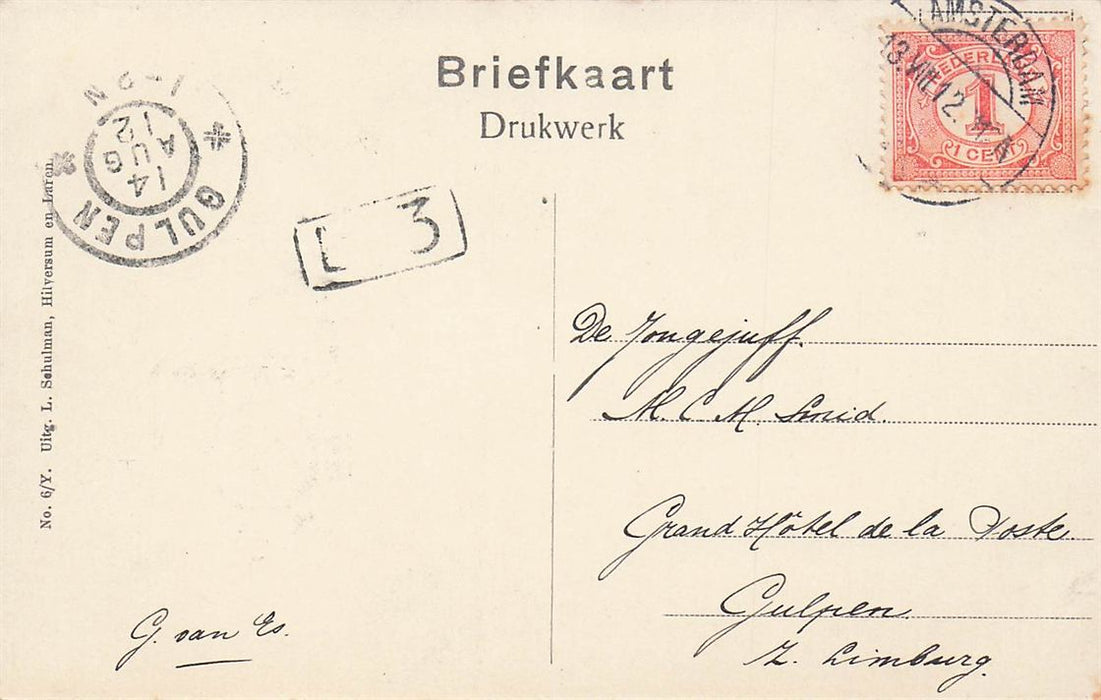 Briefkaart
Drukwerk
AMSTERDAM
13.VIII.12. 7-8 N
NEDERLAND
1
1 CENT
GULPEN
14
AUG
12
1-2N
L 3
No. 6/Y. Uitg. L. Schulman, Hilversum en Laren.
De Jongejuff.
M. C. M. Smid.
Grand Hôtel de la Poste.
Gulpen.
Z. Limburg.
G. van Es.